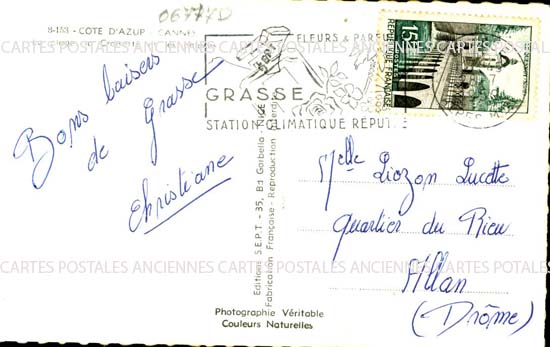 06777D
8-153 - COTE D'AZUR - CANNES
Bons baisers
de Grasse
Christiane
FLEURS & PARF
GRASSE
STATION CLIMATIQUE RÉPUT
15F
REPUBLIQUE FRANÇAISE
Editions S.E.P.T. - 35, Bd Gorbella - NICE
Fabrication Française - Reproduction Interdite
Photographie Véritable
Couleurs Naturelles
Melle Liozon Lucette
Quartier du Rieu
Allan
(Drôme)
CARTES POSTALES ANCIENNES CARTES POSTALES ANCIENNES CARTES POSTALES ANCIENNES